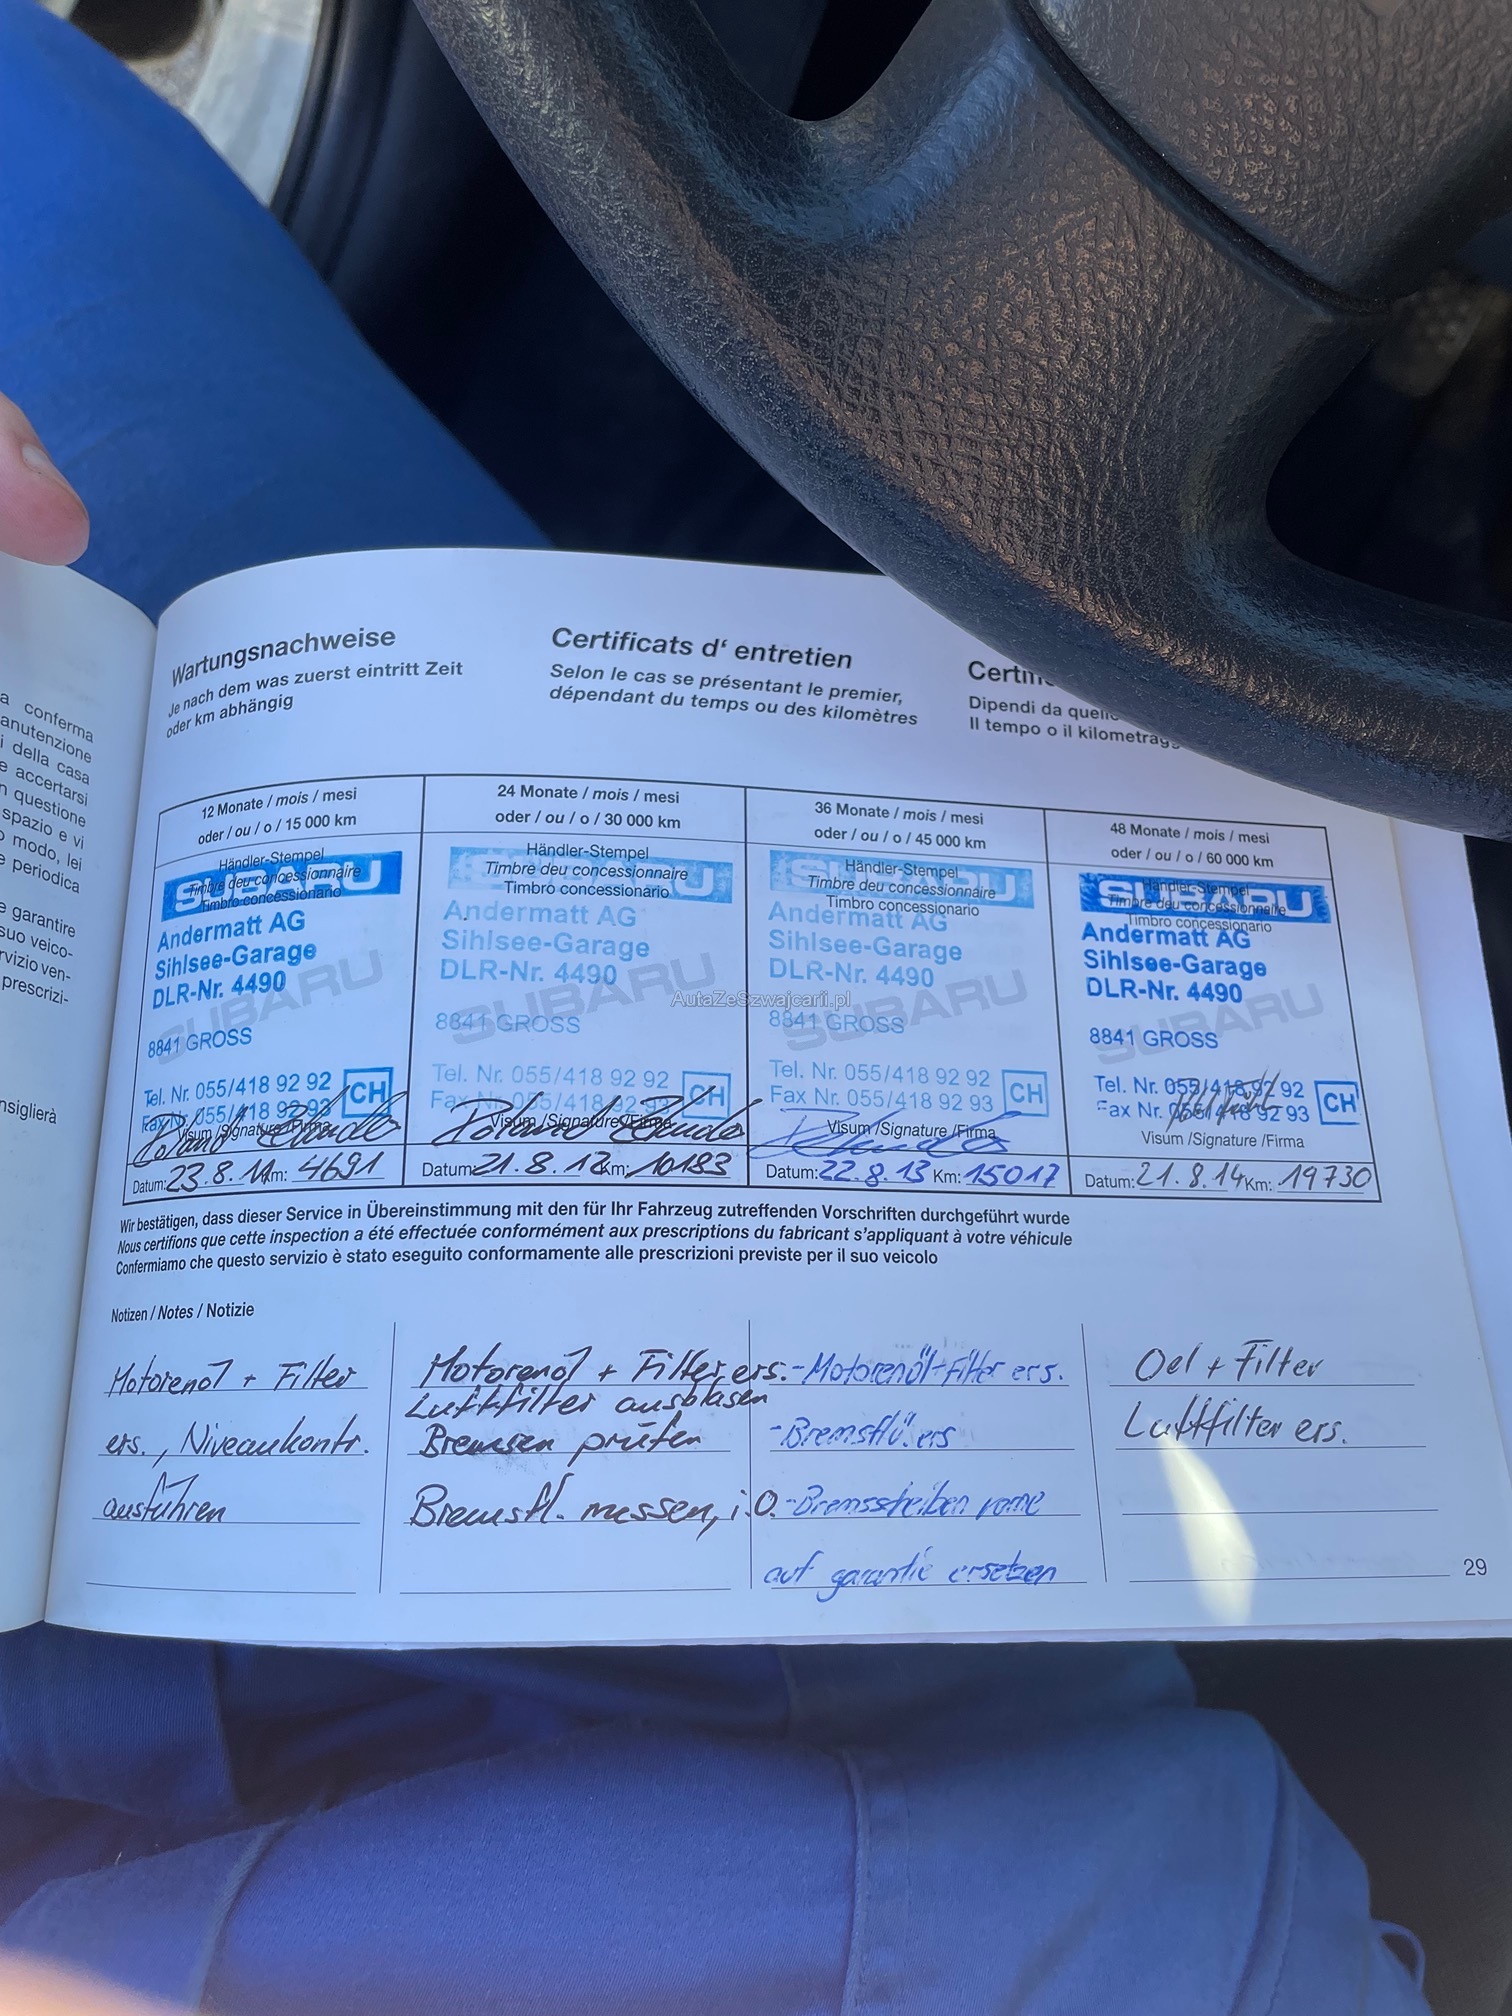 a conferma
anutenzione
i della casa
e accertarsi
n questione
spazio e vi
o modo, lei
e periodica
e garantire
suo veico-
rvizio ven-
prescrizi-
nsiglierà
Wartungsnachweise
Je nach dem was zuerst eintritt Zeit
oder km abhängig
Certificats d' entretien
Selon le cas se présentant le premier,
dépendant du temps ou des kilomètres
Certifi
Dipendi da quello
Il tempo o il kilometragg
12 Monate / mois / mesi
oder / ou / o / 15 000 km
Händler-Stempel
Timbre deu concessionnaire
Timbro concessionario
SUBARU
Andermatt AG
Sihlsee-Garage
DLR-Nr. 4490
SUBARU
8841 GROSS
Tel. Nr. 055/418 92 92
Fax Nr. 055/418 92 93
CH
Visum /Signature /Firma
Datum: 23.8.11 Km: 4691
24 Monate / mois / mesi
oder / ou / o / 30 000 km
Händler-Stempel
Timbre deu concessionnaire
Timbro concessionario
SUBARU
Andermatt AG
Sihlsee-Garage
DLR-Nr. 4490
SUBARU
8841 GROSS
Tel. Nr. 055/418 92 92
Fax Nr. 055/418 92 93
CH
Visum /Signature /Firma
Datum: 21.8.12 Km: 10183
36 Monate / mois / mesi
oder / ou / o / 45 000 km
Händler-Stempel
Timbre deu concessionnaire
Timbro concessionario
SUBARU
Andermatt AG
Sihlsee-Garage
DLR-Nr. 4490
SUBARU
8841 GROSS
Tel. Nr. 055/418 92 92
Fax Nr. 055/418 92 93
CH
Visum /Signature /Firma
Datum: 22.8.13 Km: 15017
48 Monate / mois / mesi
oder / ou / o / 60 000 km
Händler-Stempel
Timbre deu concessionnaire
Timbro concessionario
SUBARU
Andermatt AG
Sihlsee-Garage
DLR-Nr. 4490
SUBARU
8841 GROSS
Tel. Nr. 055/418 92 92
Fax Nr. 055/418 92 93
CH
Visum /Signature /Firma
Datum: 21.8.14 Km: 19730
AutaZeSzwajcarii.pl
Wir bestätigen, dass dieser Service in Übereinstimmung mit den für Ihr Fahrzeug zutreffenden Vorschriften durchgeführt wurde
Nous certifions que cette inspection a été effectuée conformément aux prescriptions du fabricant s'appliquant à votre véhicule
Confermiamo che questo servizio è stato eseguito conformamente alle prescrizioni previste per il suo veicolo
Notizen / Notes / Notizie
Motorenöl + Filter
ers., Niveaukontr.
ausführen
Motorenöl + Filter ers.
Luftfilter ausblasen
Bremsen prüfen
Bremsfl. messen, i.O.
- Motorenöl + Filter ers.
- Bremsflü. ers
- Bremsscheiben vorne
auf garantie ersetzen
Oel + Filter
Luftfilter ers.
29